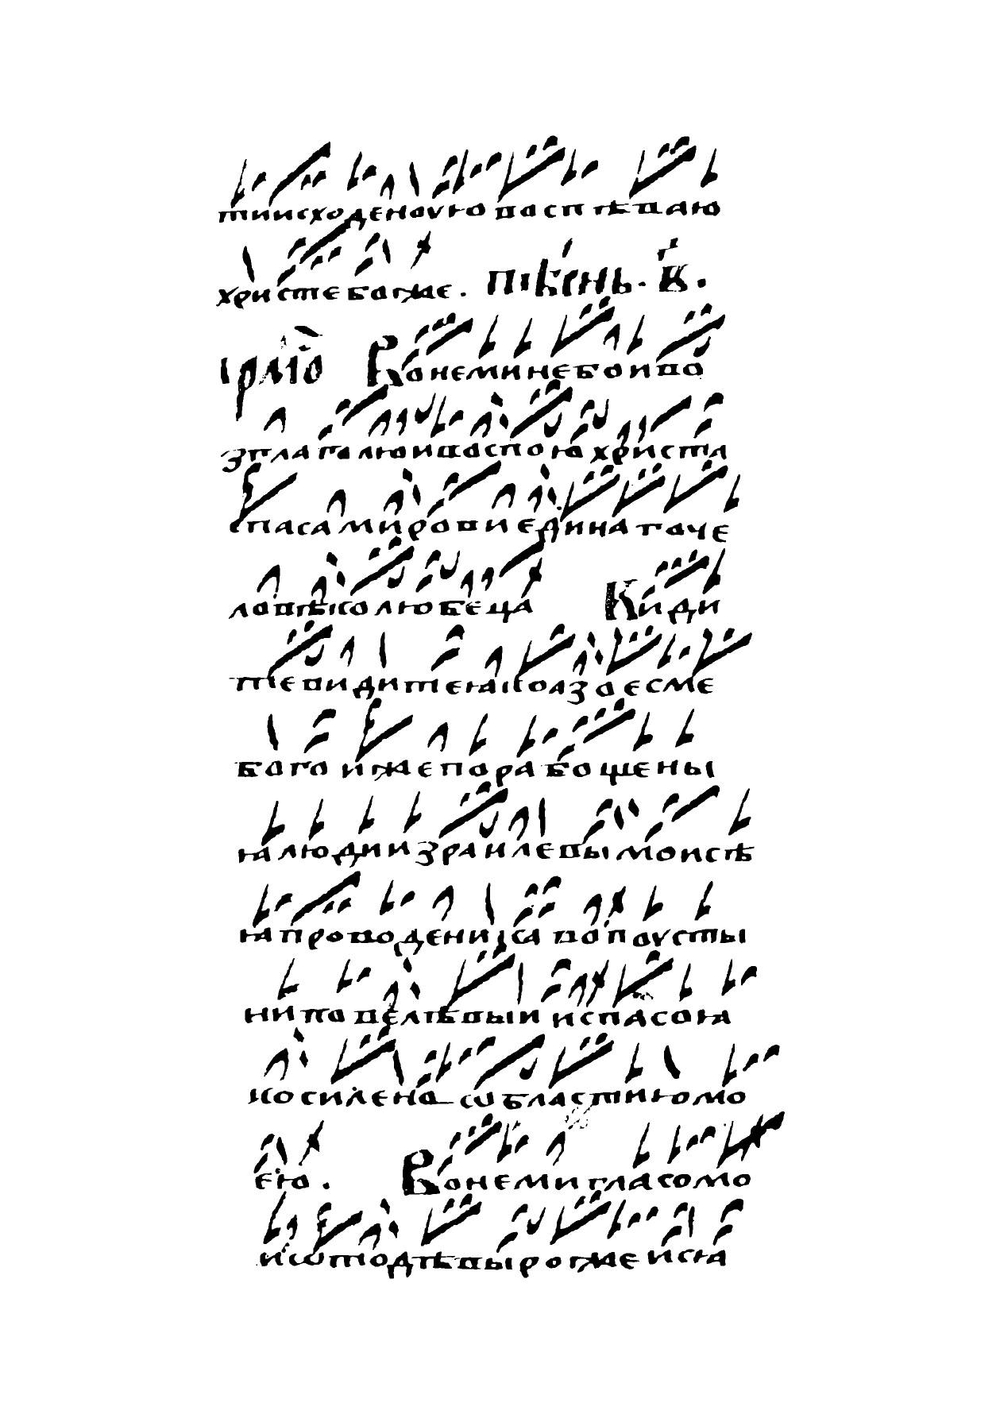 тиисходеноую воспѣваю
христе боже. Пѣснь. в҃.
ірмо Вонеминебоиво
зглаголюивоспоюхриста
спасамировиединагоче
ловѣколюбеца Видӥ
тевидитеꙗкоазоесме
богоижепорабощены
ꙗлюдиизраилевымоисѣ
ꙗпроводенисавопоусты
ниподелѣвыииспасоꙗ
косиленособластиюмо
ею. Вонемигласомо
иѿтодѣвырожеисꙗ